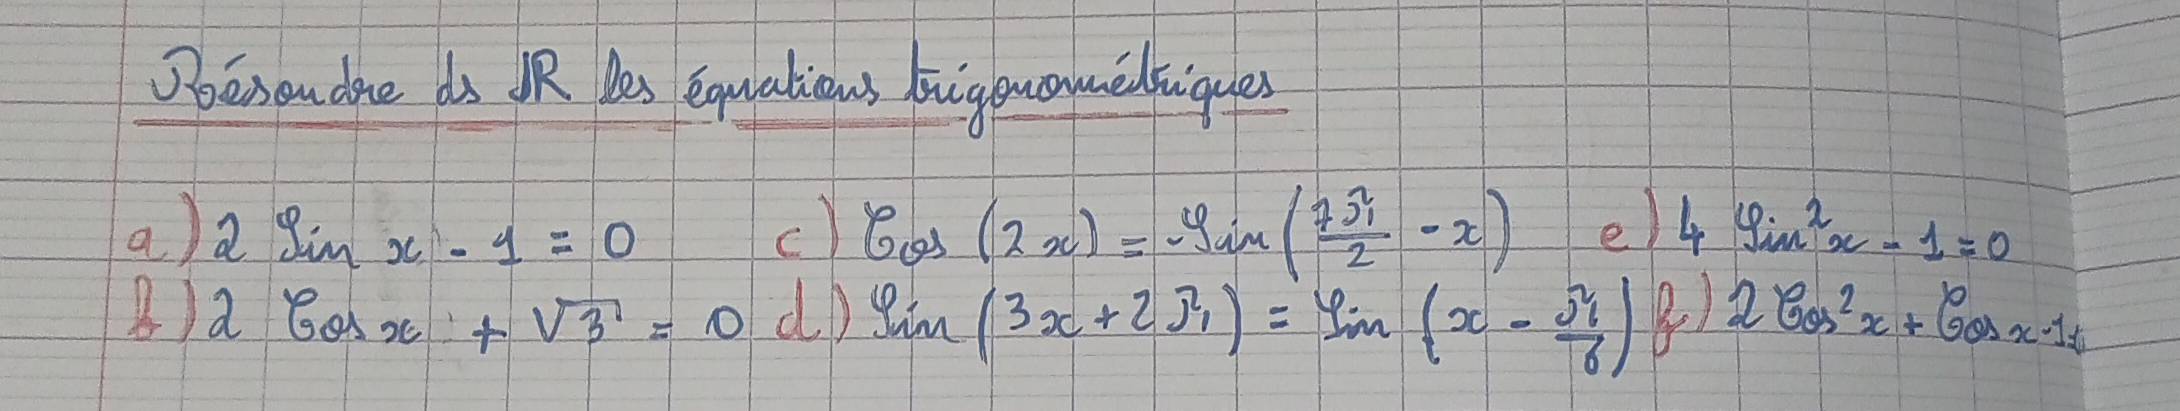 Résoudre ds IR les équations trigonométriques
a) 2 Sin x - 1 = 0 c) Cos (2x) = -Sin (7π/2 - x) e) 4 Sin²x - 1 = 0
b) 2 Cos x + √3 = 0 d) Sin (3x + 2π) = Sin (x - π/6) f) 2 Cos²x + Cos x - 1 =